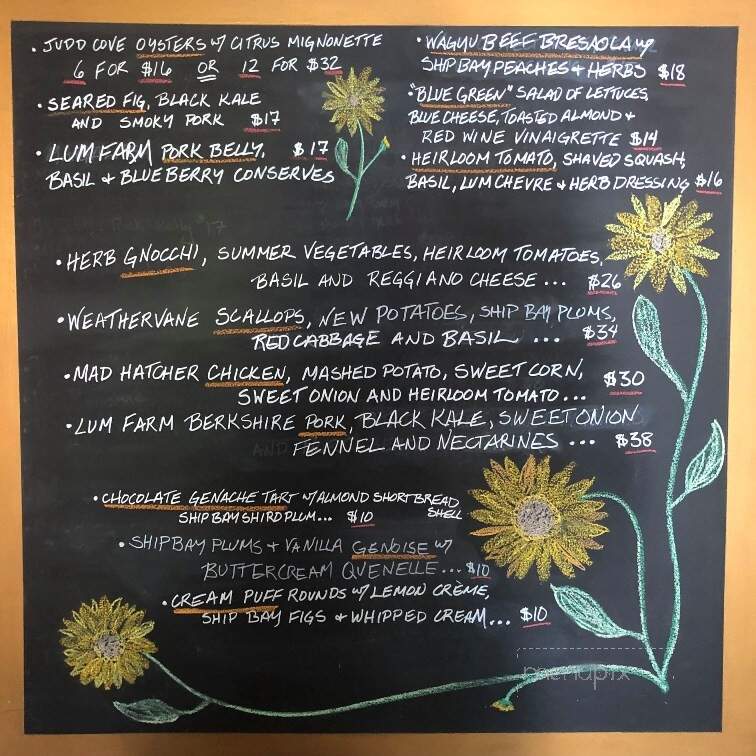 • JUDD COVE OYSTERS w/ CITRUS MIGNONETTE
6 FOR $16 OR 12 FOR $32
• SEARED FIG, BLACK KALE
AND SMOKY PORK $17
• LUM FARM PORK BELLY, $17
BASIL + BLUEBERRY CONSERVES
• WAGYU BEEF BRESAOLA w/
SHIP BAY PEACHES + HERBS $18
"BLUE GREEN" SALAD OF LETTUCES,
BLUE CHEESE, TOASTED ALMOND +
RED WINE VINAIGRETTE $14
• HEIRLOOM TOMATO, SHAVED SQUASH,
BASIL, LUM CHEVRE + HERB DRESSING $16
• HERB GNOCCHI, SUMMER VEGETABLES, HEIRLOOM TOMATOES,
BASIL AND REGGIANO CHEESE ... $26
• WEATHERVANE SCALLOPS, NEW POTATOES, SHIP BAY PLUMS,
RED CABBAGE AND BASIL ... $34
• MAD HATCHER CHICKEN, MASHED POTATO, SWEET CORN,
SWEET ONION AND HEIRLOOM TOMATO ... $30
• LUM FARM BERKSHIRE PORK, BLACK KALE, SWEET ONION
FENNEL AND NECTARINES ... $38
• CHOCOLATE GENACHE TART w/ ALMOND SHORTBREAD
SHELL
SHIP BAY SHIRO PLUM... $10
• SHIP BAY PLUMS + VANILLA GENOISE w/
BUTTERCREAM QUENELLE... $10
• CREAM PUFF ROUNDS w/ LEMON CRÈME,
SHIP BAY FIGS + WHIPPED CREAM... $10
menupix